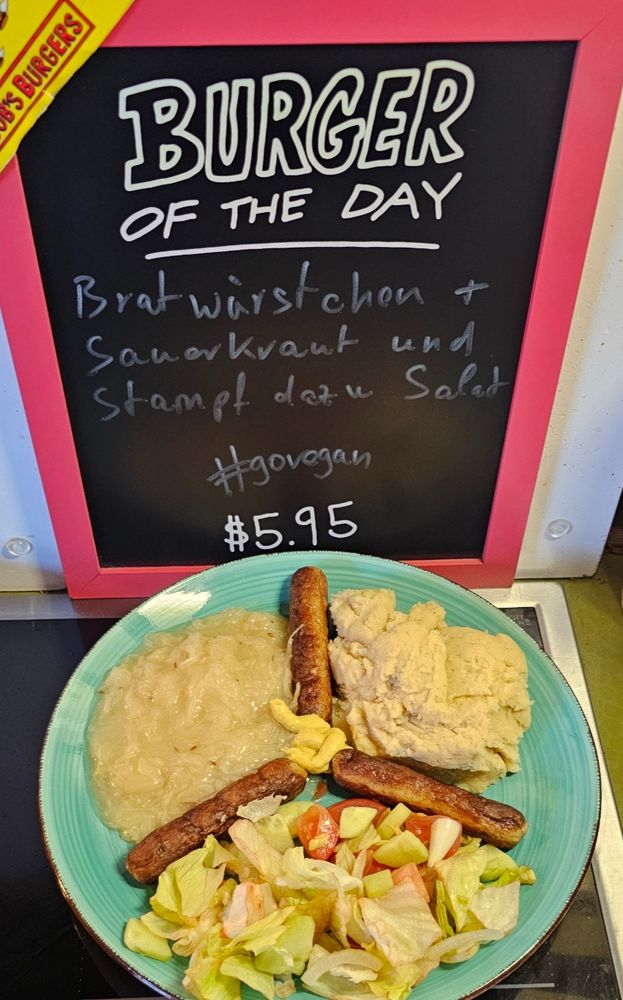 BOB'S BURGERS
BURGER
OF THE DAY
Bratwürstchen +
Sauerkraut und
Stampf dazu Salat
#govegan
$5.95